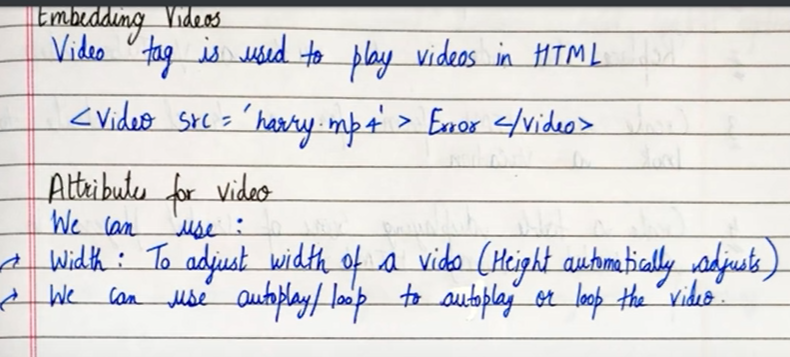 Embedding Videos
Video tag is used to play videos in HTML
<video src = 'harry.mp4' > Error </video>
Attribute for video
We can use :
→ Width : To adjust width of a vido (Height automatically adjusts)
→ We can use autoplay/loop to autoplay or loop the video.